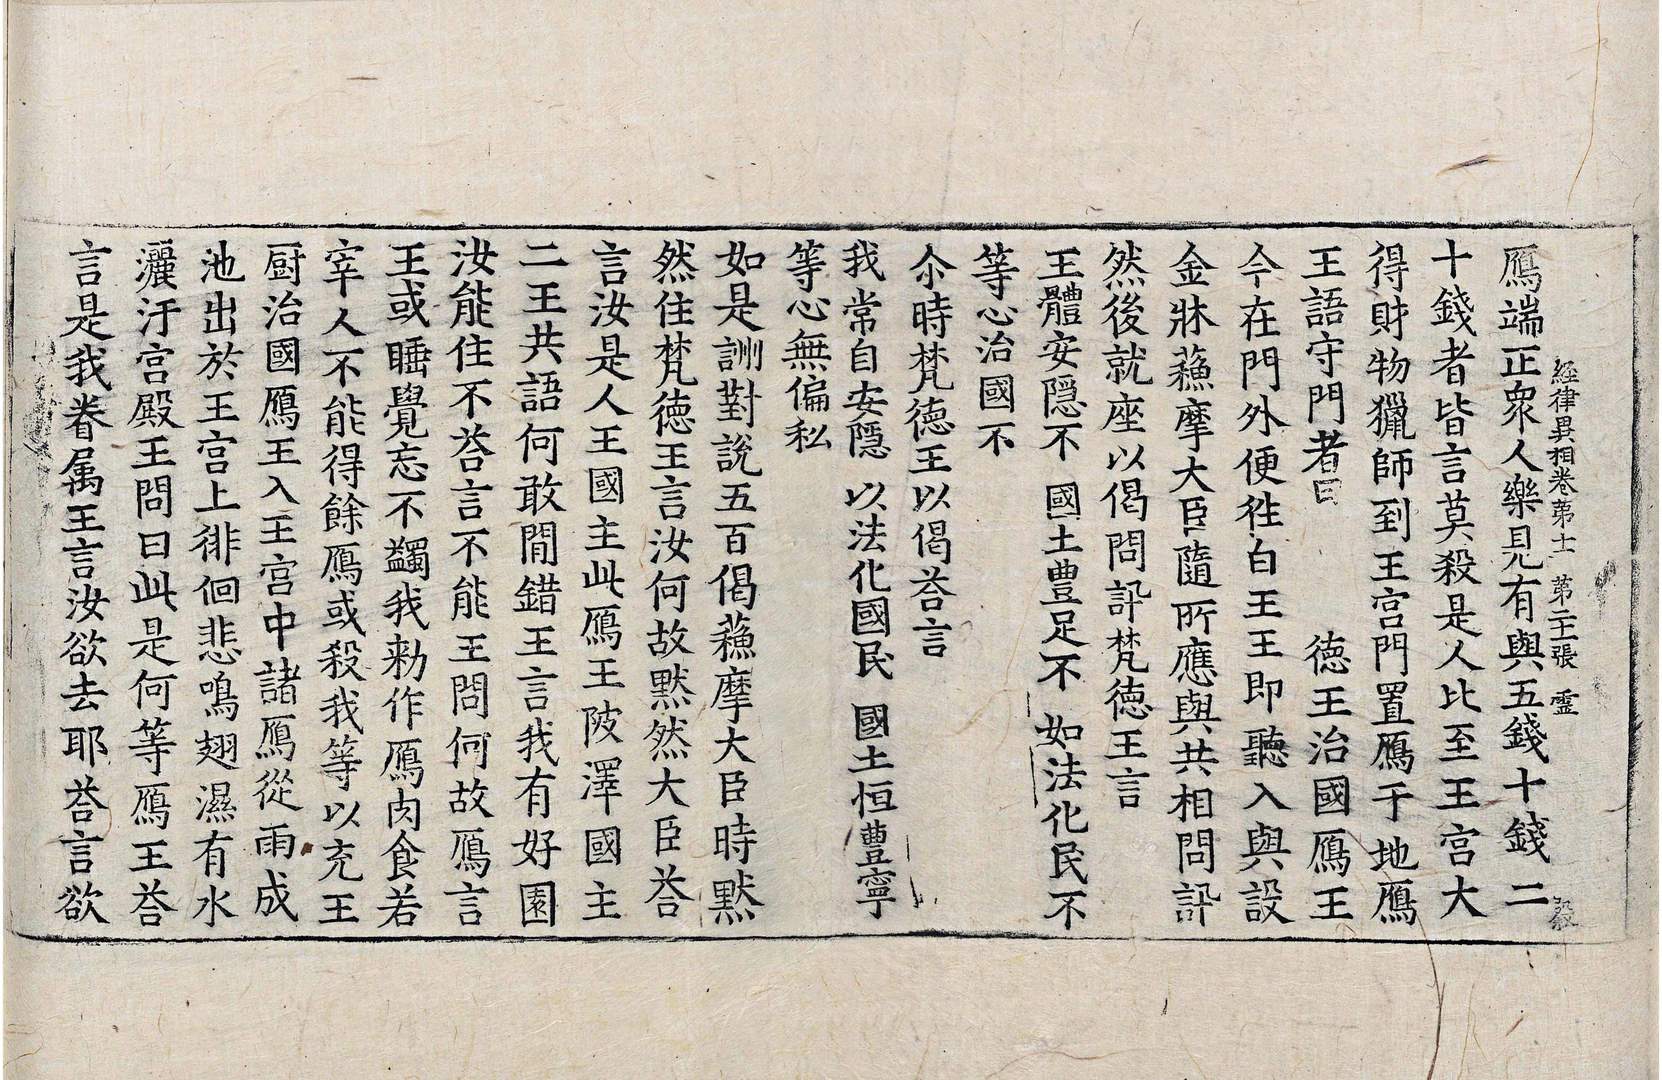 經律異相卷第十一 第二十張 靈
鴈端正衆人樂見有與五錢十錢二
十錢者皆言莫殺是人比至王宫大
得財物獵師到王宫門置鴈于地鴈
王語守門者曰 德王治國鴈王
今在門外便徃白王王即聽入與設
金牀蘓摩大臣隨所應與共相問訊
然後就座以偈問訊梵德王言
王體安隱不 國土豊足不 如法化民不
等心治國不
尒時梵德王以偈荅言
我常自安隱 以法化國民 國土恒豊寧
等心無偏私
如是詶對說五百偈蘓摩大臣時默
然住梵德王言汝何故默然大臣荅
言汝是人王國主此鴈王陂澤國主
二王共語何敢間錯王言我有好園
汝能住不荅言不能王問何故鴈言
王或睡覺忘不蠲我勑作鴈肉食若
宰人不能得餘鴈或殺我等以充王
厨治國鴈王入王宫中諸鴈從雨成
池出於王宫上徘徊悲鳴翅濕有水
灑汙宫殿王問曰此是何等鴈王荅
言是我眷属王言汝欲去耶荅言欲